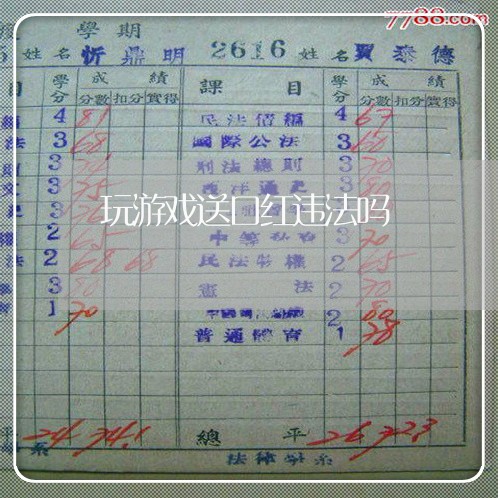 7788.com
學期
5 姓名 忻鼎明 2616 姓名 賈泰德
目 學分 成績 分數 扣分 實得 課目 學分 成績 分數 扣分 實得
4 81 民法債編 4 67
法 3 68 國際公法 3 60
3 刑法總則 3 70
3 75 西洋通史 3 80
3
玩游戏送口红违法吗
2 65 3 70
法 2 68 68 民法物權 2 65
3 80 憲法 2 70
1 70 2 80
普通體育 1 78
平 24 74.1 總平 26 72.3
系 法律學系